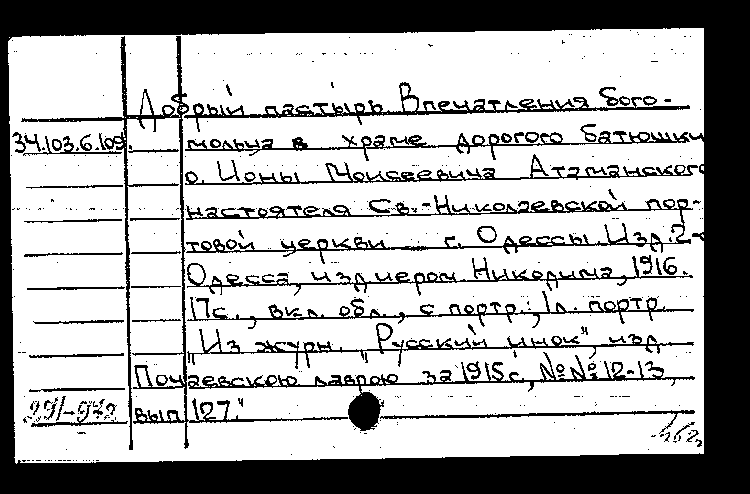 Добрый пастырь Впечатления бого-
34.103.6.109. мольца в храме дорогого батюшки
о. Ионы Моисеевича Атаманского
настоятеля Св.-Николаевской пор-
товой церкви г. Одессы. Изд. 2-е
Одесса, изд иером. Никодима, 1916.
17с., вкл. обл., с портр.; 1л. портр.
"Из журн. „Русский инок", изд.
Почаевскою лаврою за 1915 г., №№ 12-13,
вып 127."